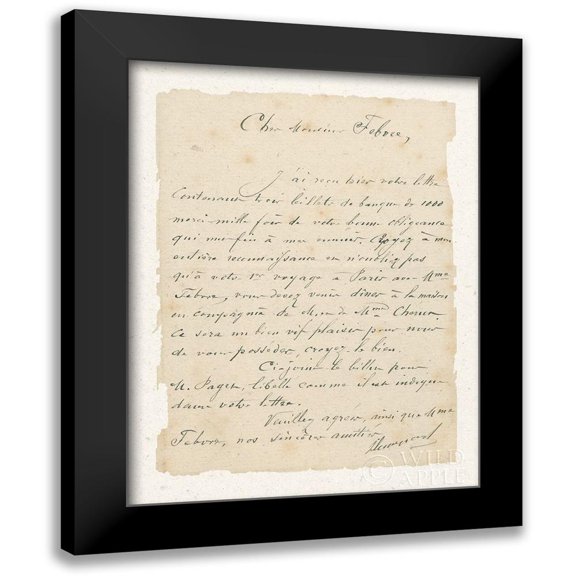 Cher Monsieur Febvre,
J'ai reçu hier votre lettre
contenant trois billets de banque de 1000
merci mille fois de votre bonne obligeance
qui à Croyez à mon
entière reconnaissance et n'oubliez pas
qu'à votre 1er voyage à Paris avec Mme
Febvre, vous devez venir dîner à la maison
en compagnie de M. et de Mme
Ce sera un bien vif plaisir pour nous
de vous posséder, croyez le bien.
Ci-joint le billet pour
M. libellé comme il est indiqué
dans votre lettre.
Veuillez agréer, ainsi que Mme
Febvre, nos sincères amitiés
WILD
APPLE